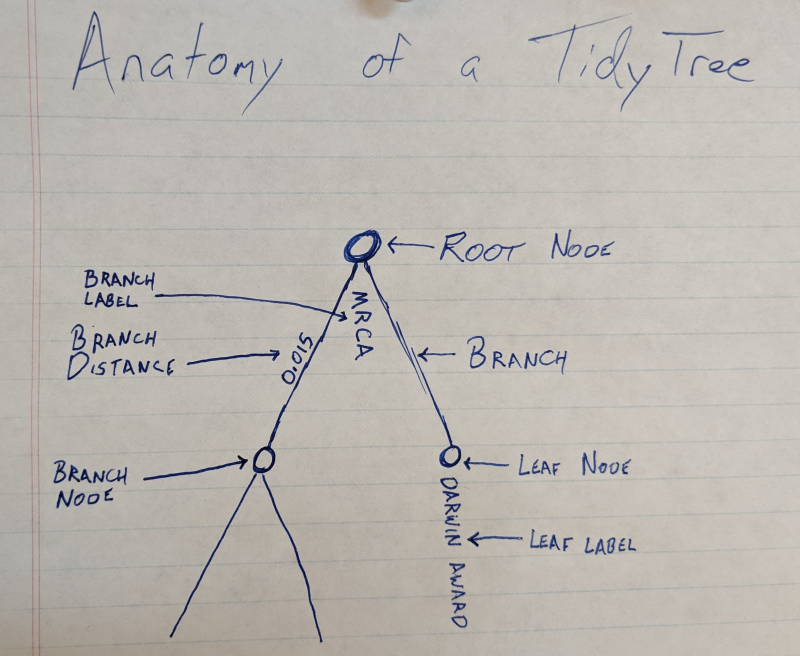 Anatomy of a TidyTree
ROOT NODE
BRANCH
LABEL
MRCA
BRANCH
DISTANCE
0.015
BRANCH
BRANCH
NODE
LEAF NODE
DARWIN AWARD
LEAF LABEL